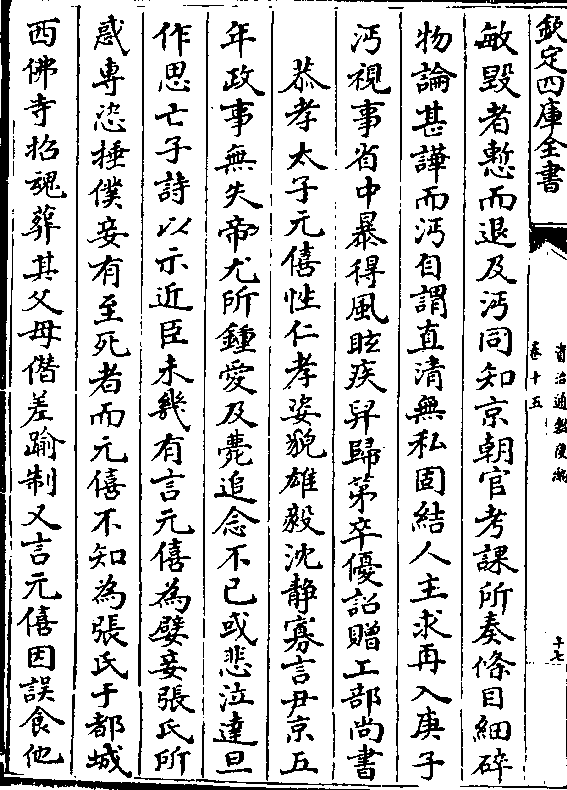 欽定四庫全書
資治通鑑後編
卷十五
十七
敏毁者慙而退及沔同知京朝官考課所奏條目細碎
物論甚譁而沔自謂直清無私固結人主求再入庚子
沔視事省中暴得風眩疾舁歸第卒優詔贈工部尚書
恭孝太子元僖性仁孝姿貌雄毅沈靜寡言尹京五
年政事無失帝尤所鍾愛及薨追念不已或悲泣達旦
作思亡子詩以示近臣未幾有言元僖為嬖妾張氏所
惑專恣捶僕妾有至死者而元僖不知為張氏于都城
西佛寺招魂葬其父母僭差踰制又言元僖因誤食他